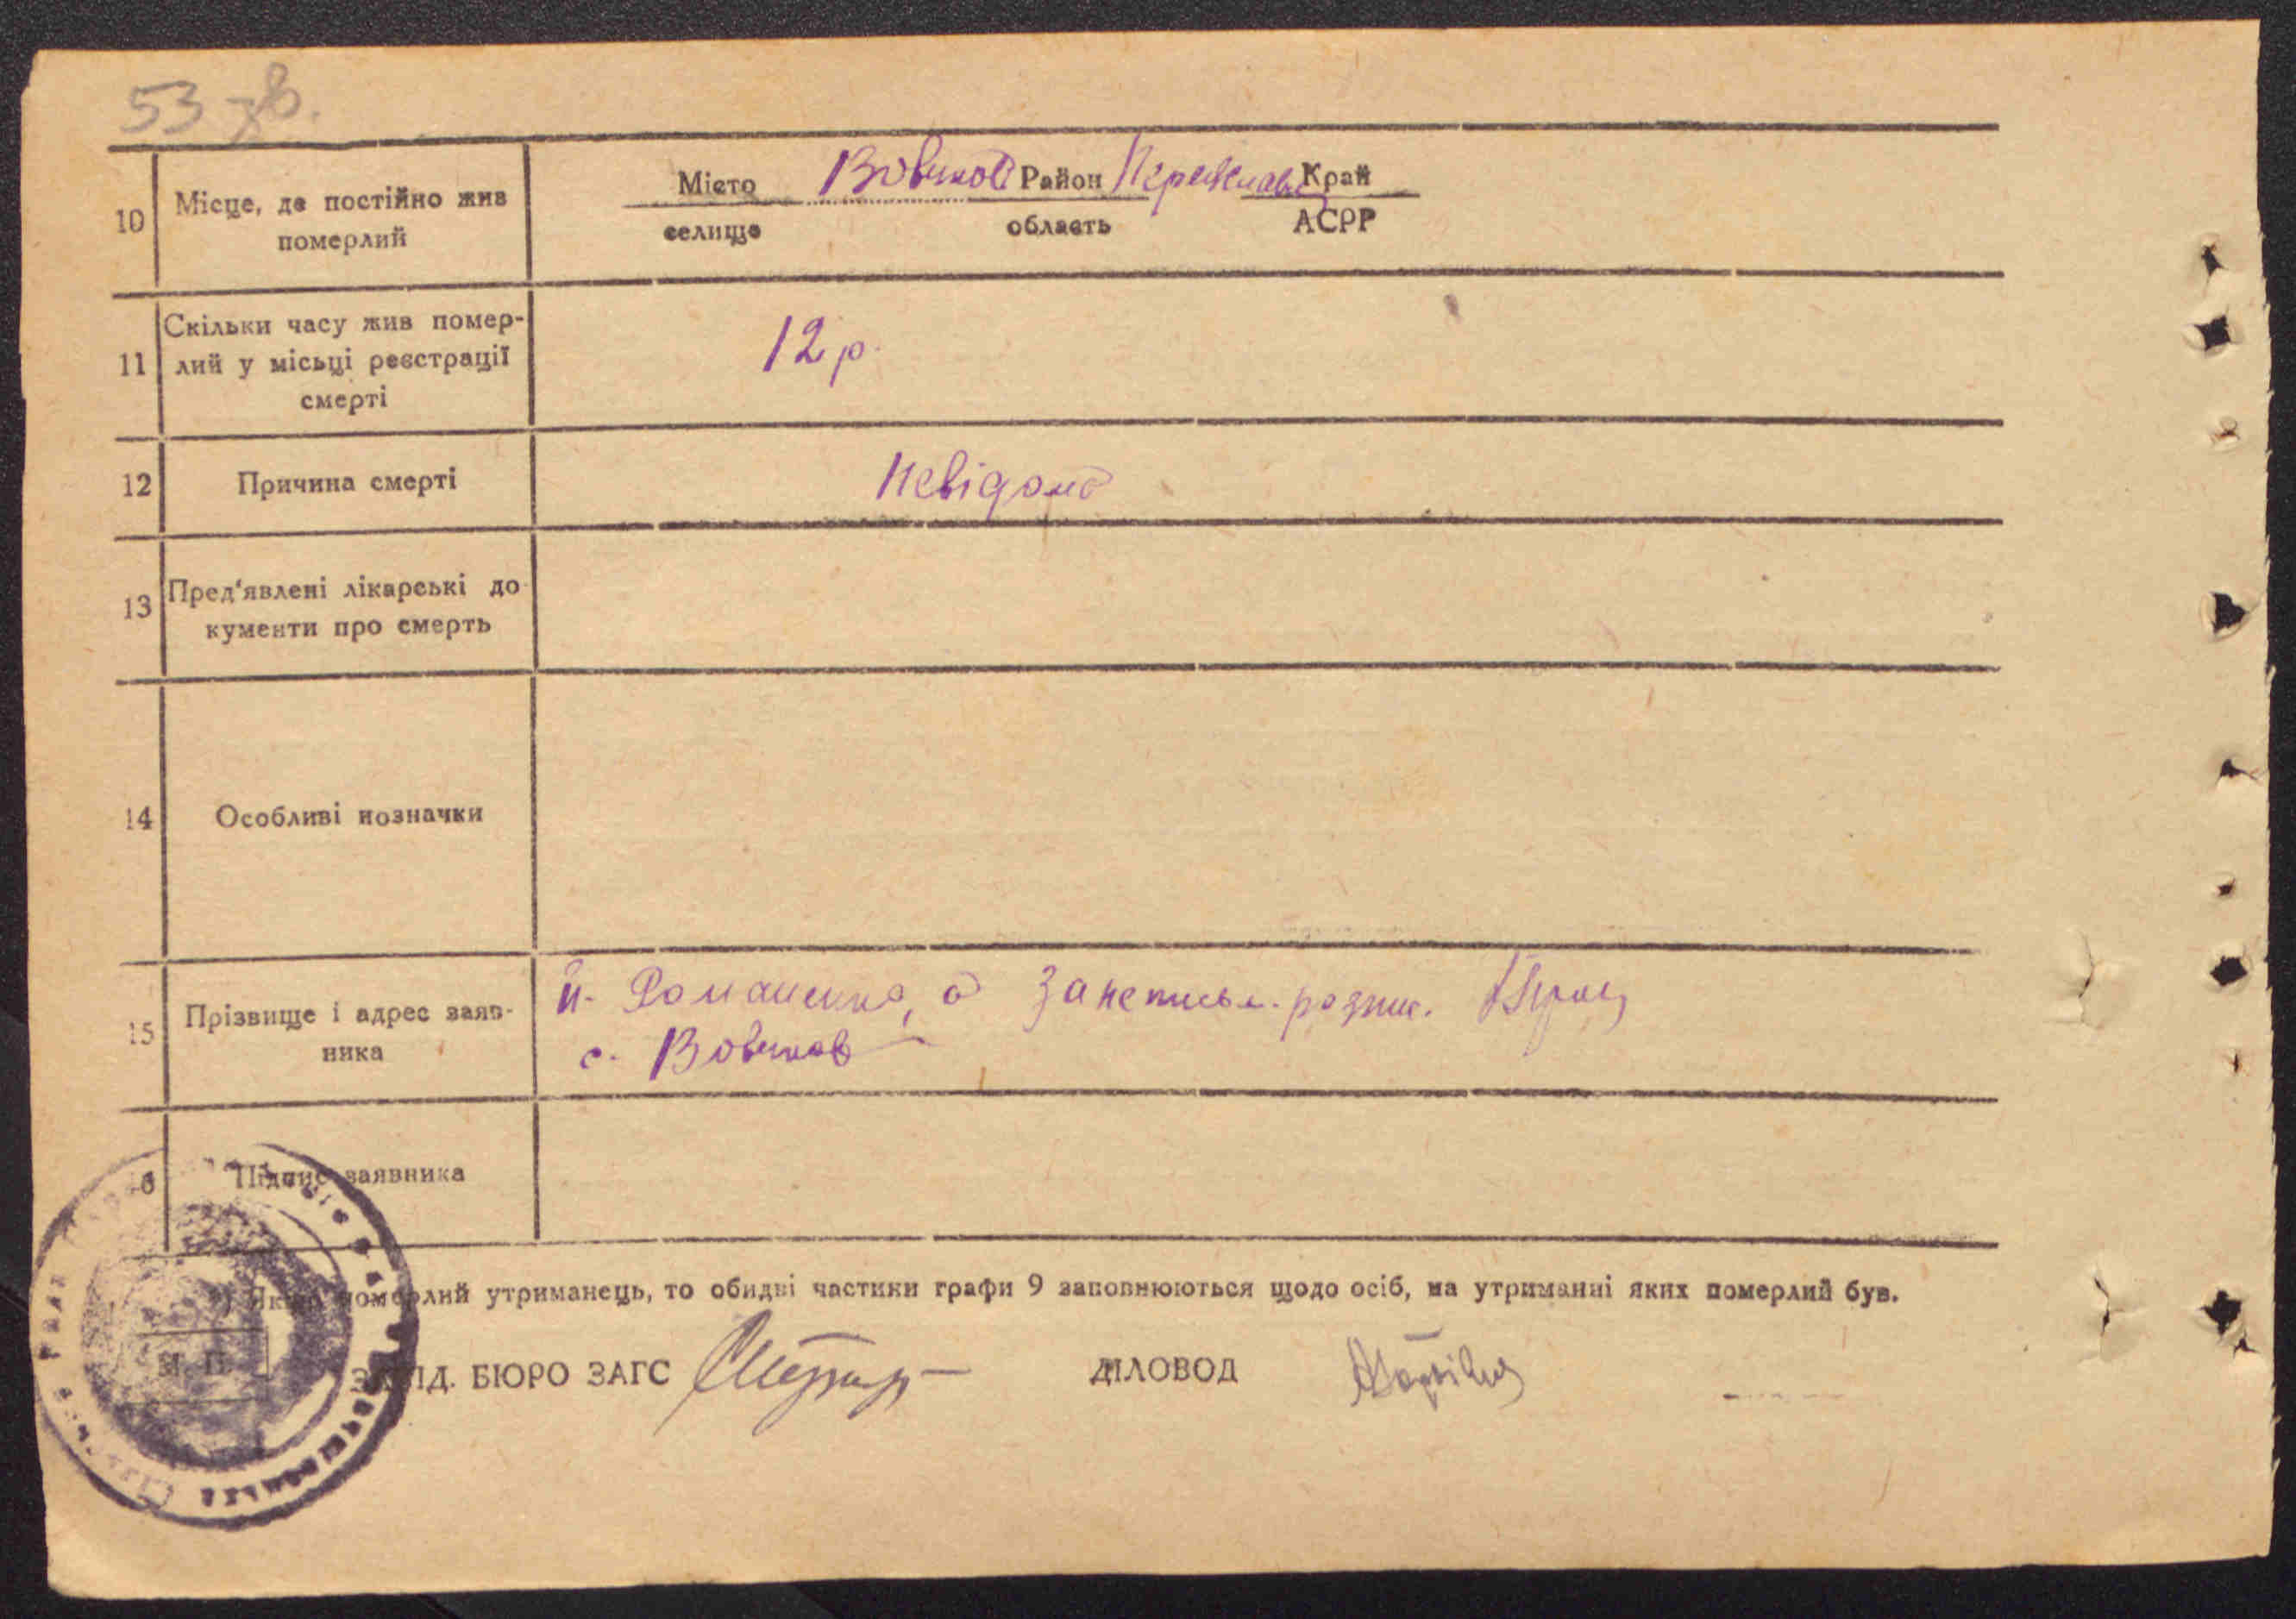 53 зв.
10 Місце, де постійно жив померлий
Місто Вовчков Район Переяслав Край
селище область АСРР
11 Скільки часу жив помер-
лий у місьці реєстрації
смерті
12 р.
12 Причина смерті
Невідома
13 Пред'явлені лікарські до
кументи про смерть
14 Особливі позначки
15 Прізвище і адрес заяв-
ника
Й. Романенко, а за неписьм. розпис.
с. Вовчков
Підпис заявника
померлий утриманець, то обидві частини графи 9 заповнюються щодо осіб, на утриманні яких померлий був.
М. П.
ЗАВІД. БЮРО ЗАГС
ДІЛОВОД